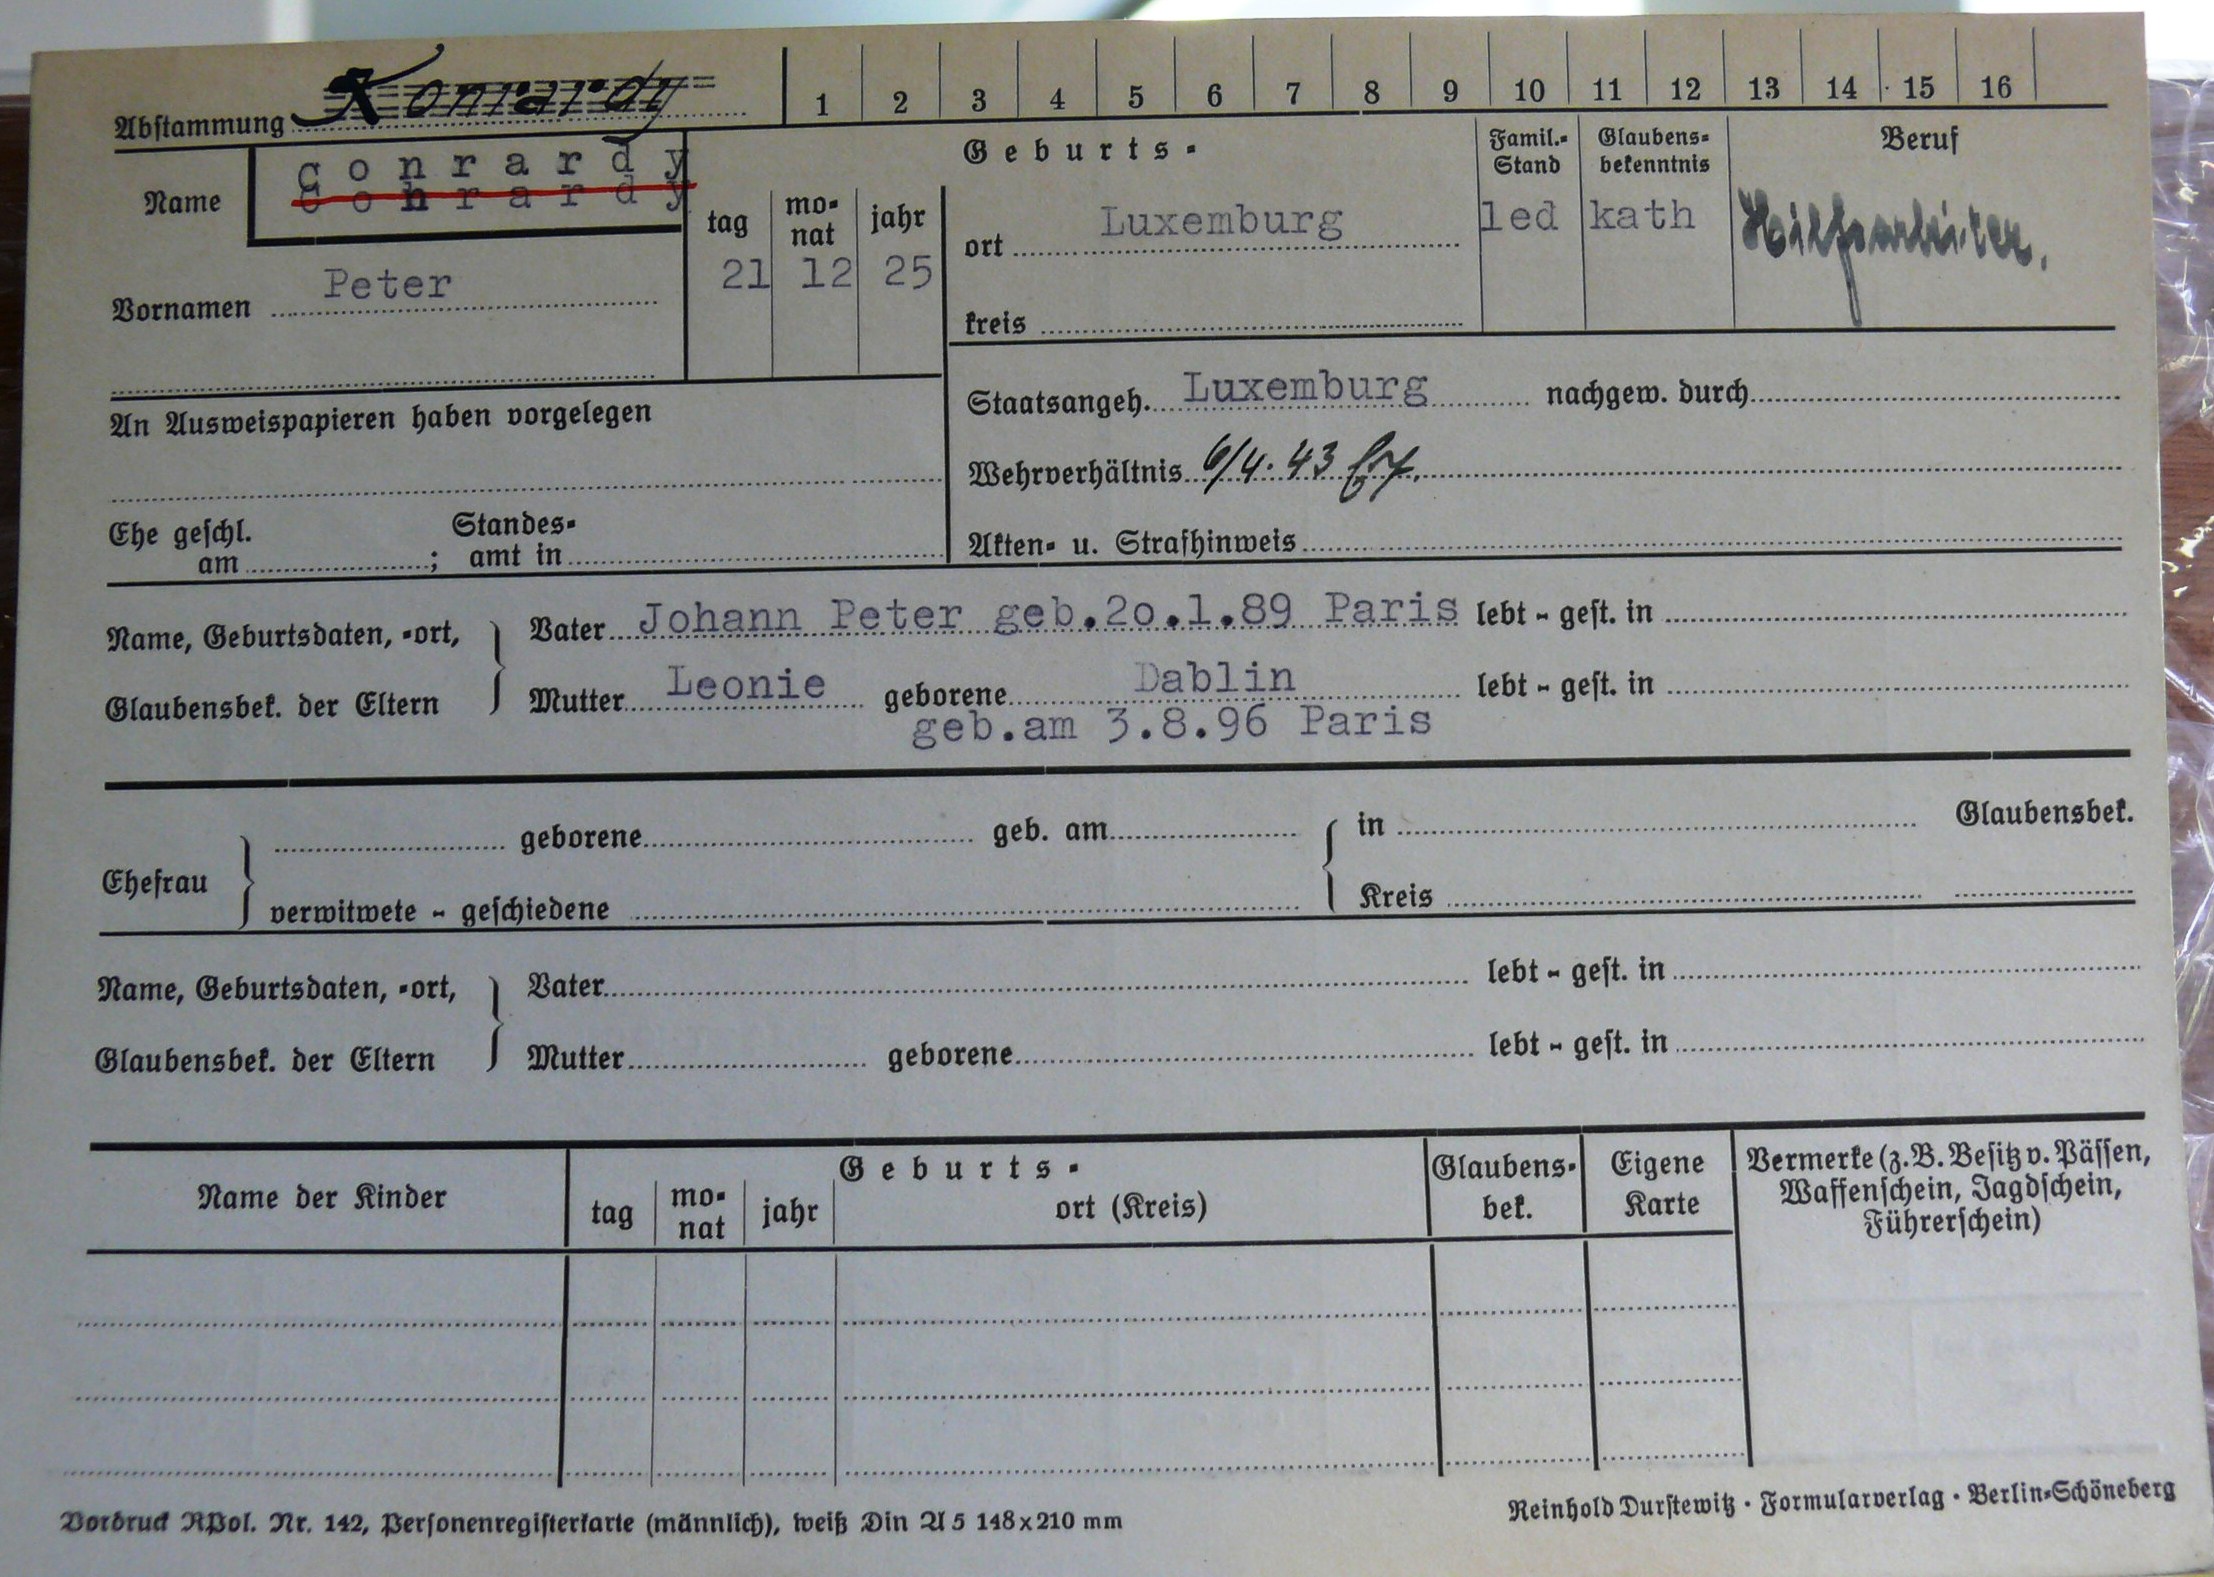 Abstammung Konrardy 1 2 3 4 5 6 7 8 9 10 11 12 13 14 15 16
Name conrardy
Conrardy
Geburts-
tag monat jahr
21 12 25
ort Luxemburg
kreis
Famil.-Stand
led
Glaubensbekenntnis
kath
Beruf
Hilfsarbeiter.
Vornamen Peter
An Ausweispapieren haben vorgelegen
Staatsangeh. Luxemburg nachgew. durch
Wehrverhältnis 6/4. 43
Akten- u. Strafhinweis
Ehe geschl. am ; Standesamt in
Name, Geburtsdaten, -ort,
Glaubensbek. der Eltern
Vater Johann Peter geb.2o.1.89 Paris lebt - gest. in
Mutter Leonie geborene Dablin lebt - gest. in
geb.am 3.8.96 Paris
Ehefrau
geborene geb. am in Glaubensbek.
verwitwete - geschiedene Kreis
Name, Geburtsdaten, -ort,
Glaubensbek. der Eltern
Vater lebt - gest. in
Mutter geborene lebt - gest. in
Name der Kinder
Geburts-
tag monat jahr ort (Kreis)
Glaubens-
bek.
Eigene
Karte
Vermerke (z.B. Besitz v. Pässen,
Waffenschein, Jagdschein,
Führerschein)
Vordruck RPol. Nr. 142, Personenregisterkarte (männlich), weiß Din A 5 148x210 mm
Reinhold Durstewitz · Formularverlag · Berlin-Schöneberg